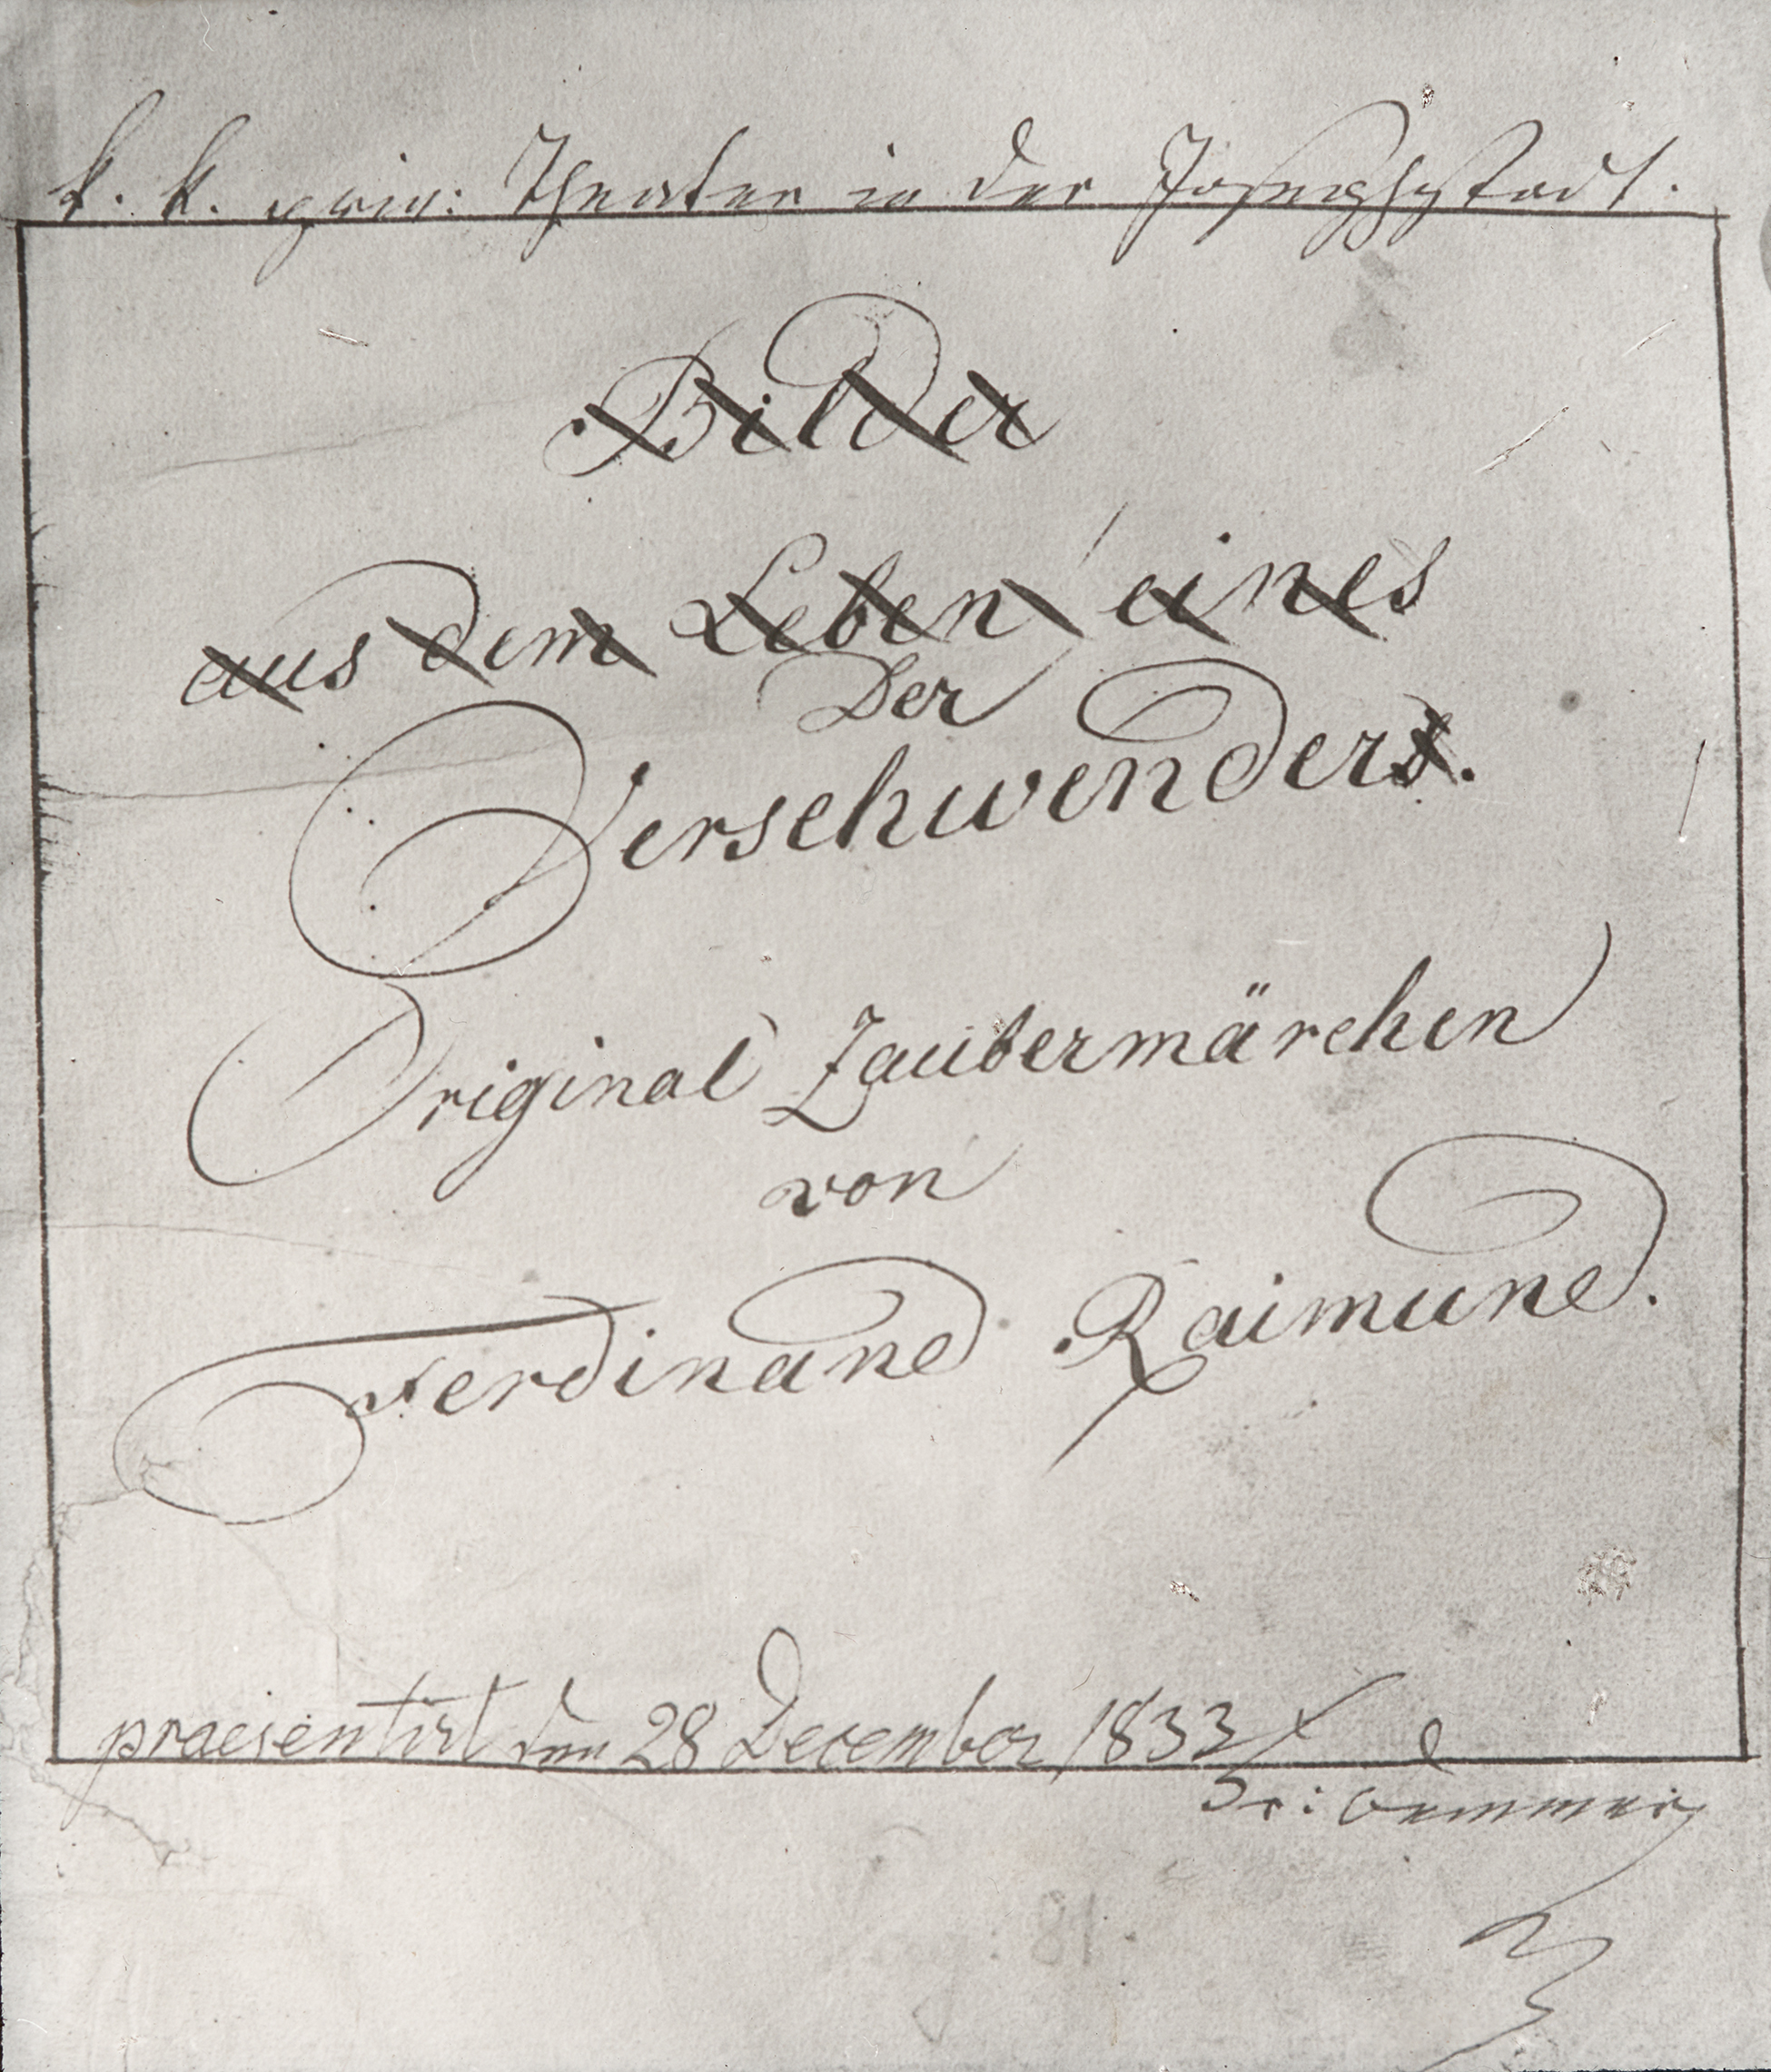 k. k. priv: Theater in der Josephstadt.
Bilder
aus dem Leben eines
Der
Verschwenders.
Original Zaubermärchen
von
Ferdinand Raimund.
praesentirt den 28 December 1833